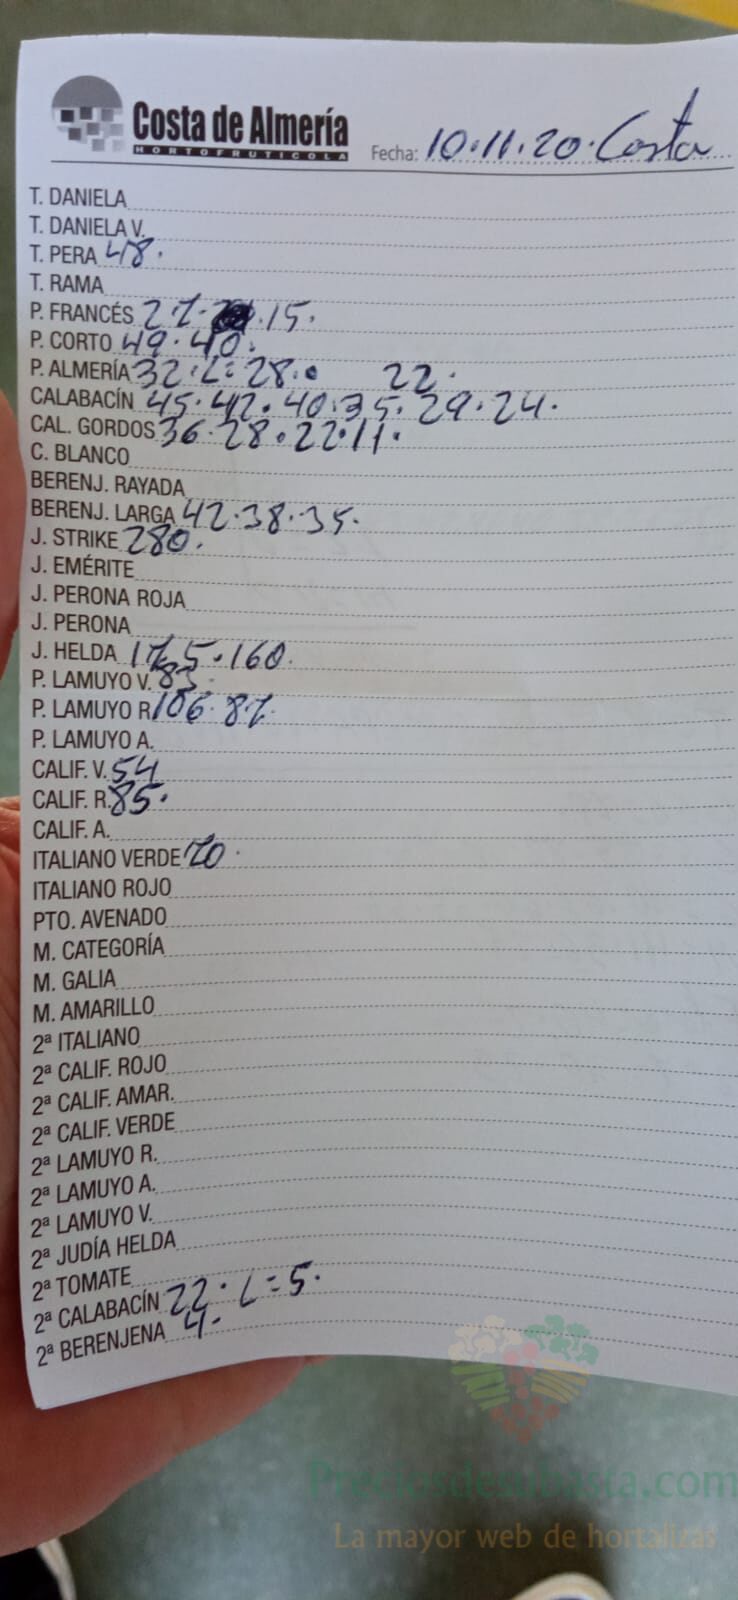 Costa de Almería
HORTOFRUTICOLA
Fecha: 10.11.20. Costa
T. DANIELA
T. DANIELA V.
T. PERA 48.
T. RAMA
P. FRANCÉS 27. .15.
P. CORTO 49. 40.
P. ALMERÍA 32. L= 28. 22.
CALABACÍN 45. 42. 40. 35. 29. 24.
CAL. GORDOS 36. 28. 22. 11.
C. BLANCO
BERENJ. RAYADA
BERENJ. LARGA 42. 38. 35.
J. STRIKE 280.
J. EMÉRITE
J. PERONA ROJA
J. PERONA
J. HELDA 175. 160.
P. LAMUYO V. 83.
P. LAMUYO R. 106. 87.
P. LAMUYO A.
CALIF. V. 54
CALIF. R. 85.
CALIF. A.
ITALIANO VERDE 70.
ITALIANO ROJO
PTO. AVENADO
M. CATEGORÍA
M. GALIA
M. AMARILLO
2ª ITALIANO
2ª CALIF. ROJO
2ª CALIF. AMAR.
2ª CALIF. VERDE
2ª LAMUYO R.
2ª LAMUYO A.
2ª LAMUYO V.
2ª JUDÍA HELDA
2ª TOMATE
2ª CALABACÍN 22. L=5.
2ª BERENJENA 4.
Preciosdesubasta.com
La mayor web de hortalizas